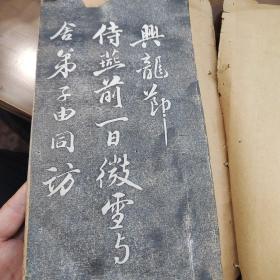 興龍節
侍燕前一日微雪与
舍弟子由同訪